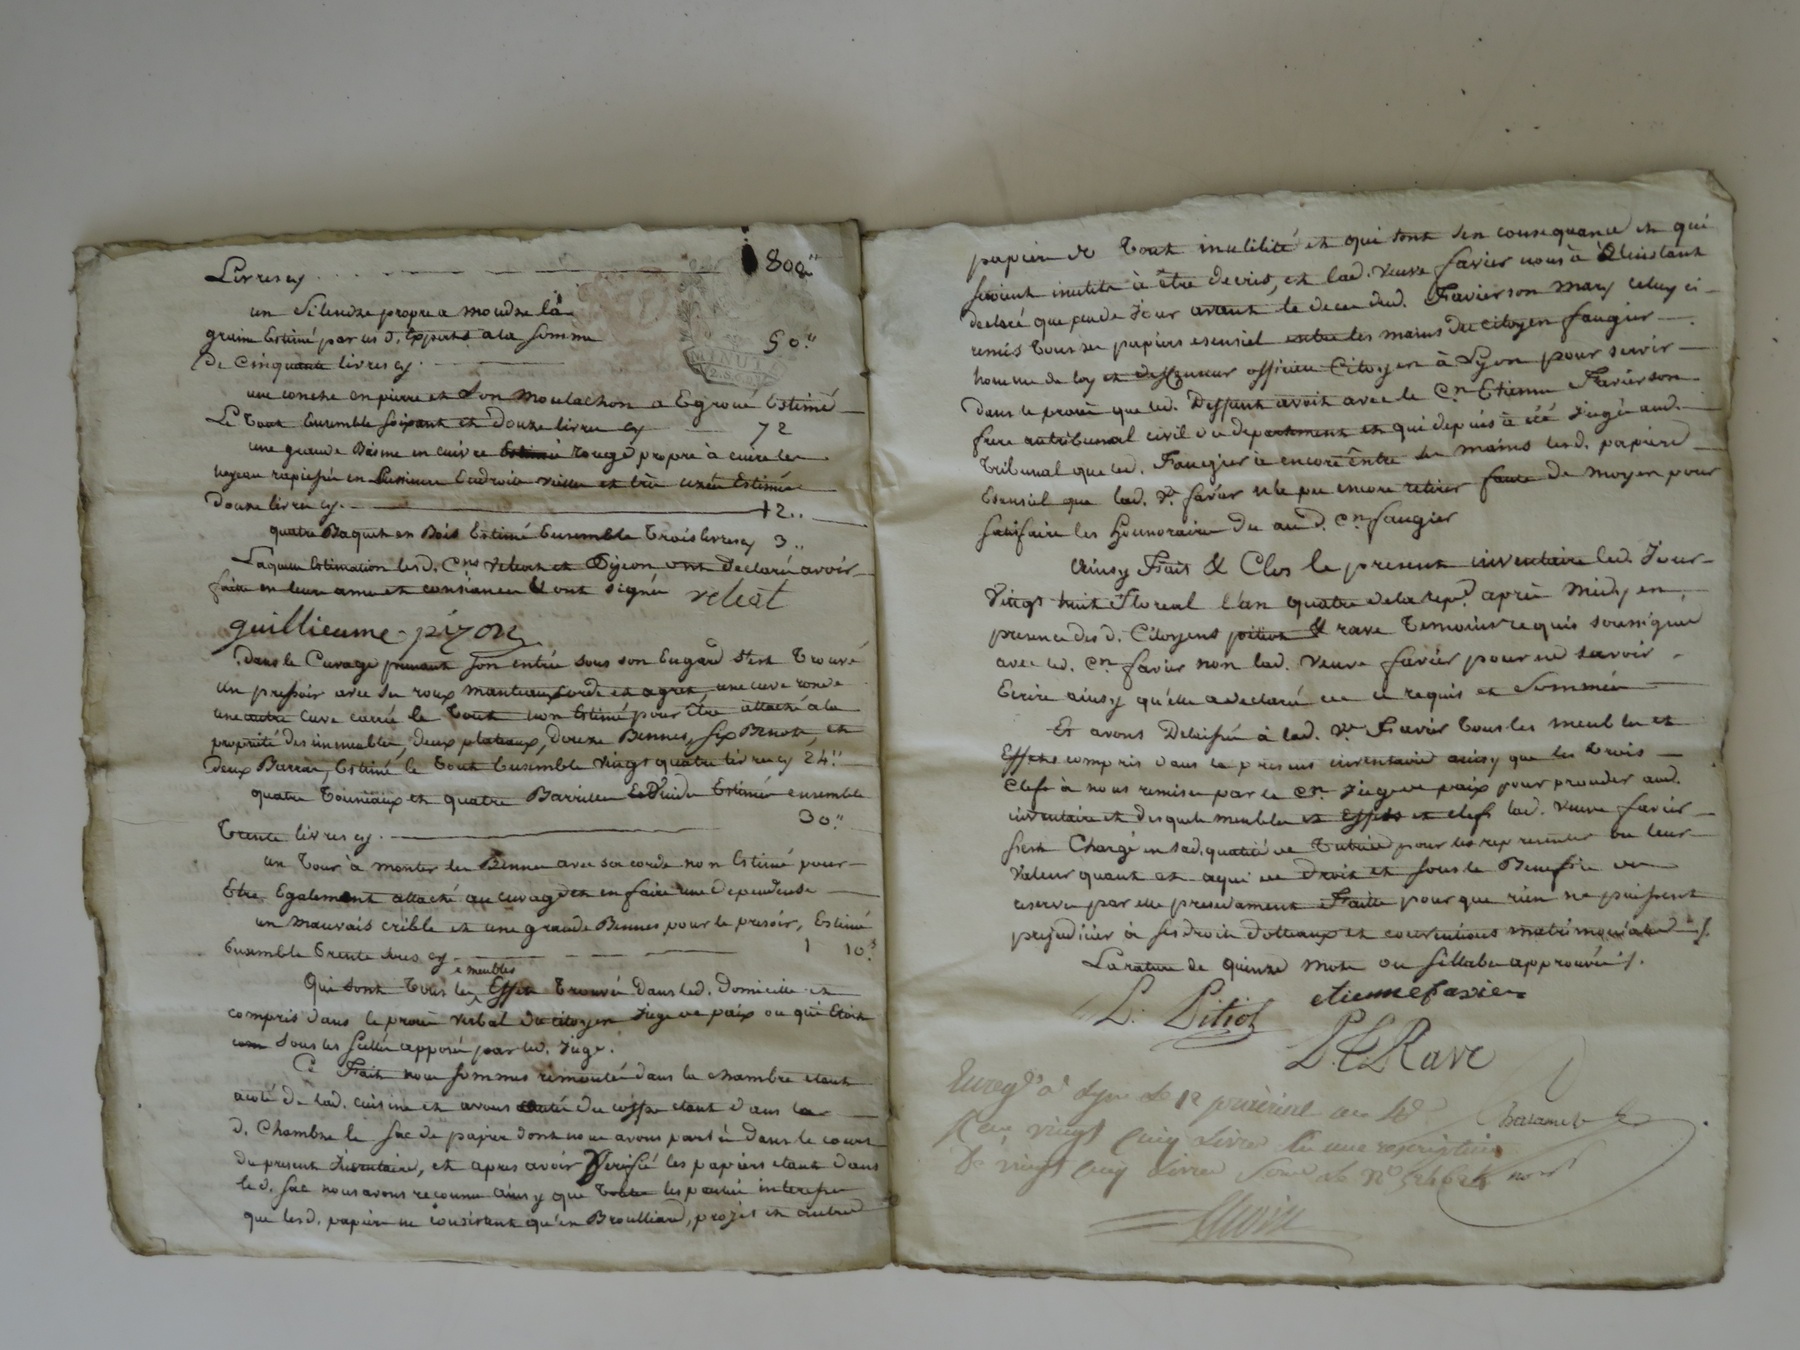 Livres cy . . . 800"
un Silendre propre a moudre la
graine Estimé par les d. Experts a la somme
De cinquante livres cy . 50."
MINUTE
une conche en pierre et son moulachon a Egroué Estimé
Le Tout Ensemble soixante et Douze livres cy 72
une grande Basine en cuivre rouge propre à cuire les
noyeau rapiessée en plusieurs Endroits vieille et très uzée Estimée
Douze livres cy . 12 ..
quatre Baquets en Bois Estimé Ensemble Trois livres cy 3 ..
Laquelle Estimation les d. Cns veleat et Pizon ont Declaré avoir
faite en leur ame et consiance & ont signés veleat
guillieaume pizon
Dans le Cuvage prenant son entrée sous son Engard s'est Trouvé
un pressoir avec sa roux manteau corde et agrets, une cuve ronde
une autre cuve carré le Tout non Estimé pour être attaché a la
propriété des immeubles, deux plateaux, douze Bennes, six Benots, et
deux Barras, Estimé le Tout Ensemble vingt quatre livres cy 24."
quatre Tonneaux et quatre Barrilles Estimés ensemble
Trente livres cy . 30."
un Tour à monter les Bennes avec sa corde non Estimé pour
Etre Egalement attaché au cuvage et en faire une Dependense
un mauvais crible et une grande Bennes pour le presoir, Estimé
Ensemble Trente sous cy . 1 10.s
e meubles
Qui sont Tous les Effets Trouvés Dans led. Domicille et
compris dans le procès verbal du citoyen Juge de paix ou qui Etoit
sous les scellés apposés par led. Juge.
Ce Fait nous sommes remontés dans la chambre etant
acoté de lad. cuisine et avons du coffre etant dans la
d. Chambre le sac de papier dont nous avons parlé dans le court
du present Inventaire, et apres avoir Verifié les papiers etant dans
led. sac nous avons reconnu ainsy que les parties interessées
que lesd. papiers ne consistent qu'en Broulliard, projet et autres
papiers de Toute inutilité et qui sont sen consequance et qui
seroient inutile à être decrits, et lad. veuve favier nous à à L'instant
declaré que peu de Jour avant le deces dud. Favier son mary celuy ci
remis Tous ses papiers esensiel entre les mains du citoyen faugier
homme de loy et deffenseur officieu Citoyen à Lyon pour servir
dans le procès que led. Deffunt avoit avec le Cn Etienne Favier son
frere au tribunal civil du departement et qui depuis à été Jugé aud.
Tribunal que led. Faugier à encore entre ses mains lesd. papiers
Esensiel que lad. Ve. favier n'a pu encore retirer faute de moyen pour
satisfaire les Honnoraire du aud. Cn faugier
Ainsy Fait & Clos le present inventaire led. Jour
Vingt huit Floreal l'an quatre de la rep. après midy en
presence des d. Citoyens pitiot & rave Temoins requis soussignés
avec led. Cn favier non lad. veuve favier pour ne savoir
Ecrire ainsy qu'elle a declaré de ce requis et sommée
Et avons Delaissé à lad. Ve Favier tous les meubles et
Effets compris dans le present inventaire ainsy que les trois
Clefs à nous remises par le Cn Juge de paix pour proceder aud.
inventaire et desquels meubles et Effets et clefs lad. veuve favier
s'est Chargé en sad. qualité de Tutrice pour les representer ou leur
valeur quant et a qui de droit et sous le Benefice de
reserve par elle precedament Faitte pour que rien ne puissent
prejudicier à ses droits dotteaux et conventions matrimoniales /.
La rature de quinze mots ou sillabes approuvée /.
L. Pitiot etienne favier
P. L. Rave
Enregé à Lyon le 12 prairial an 4e
vingt cinq Livres En une rescription
De vingt cinq Livres